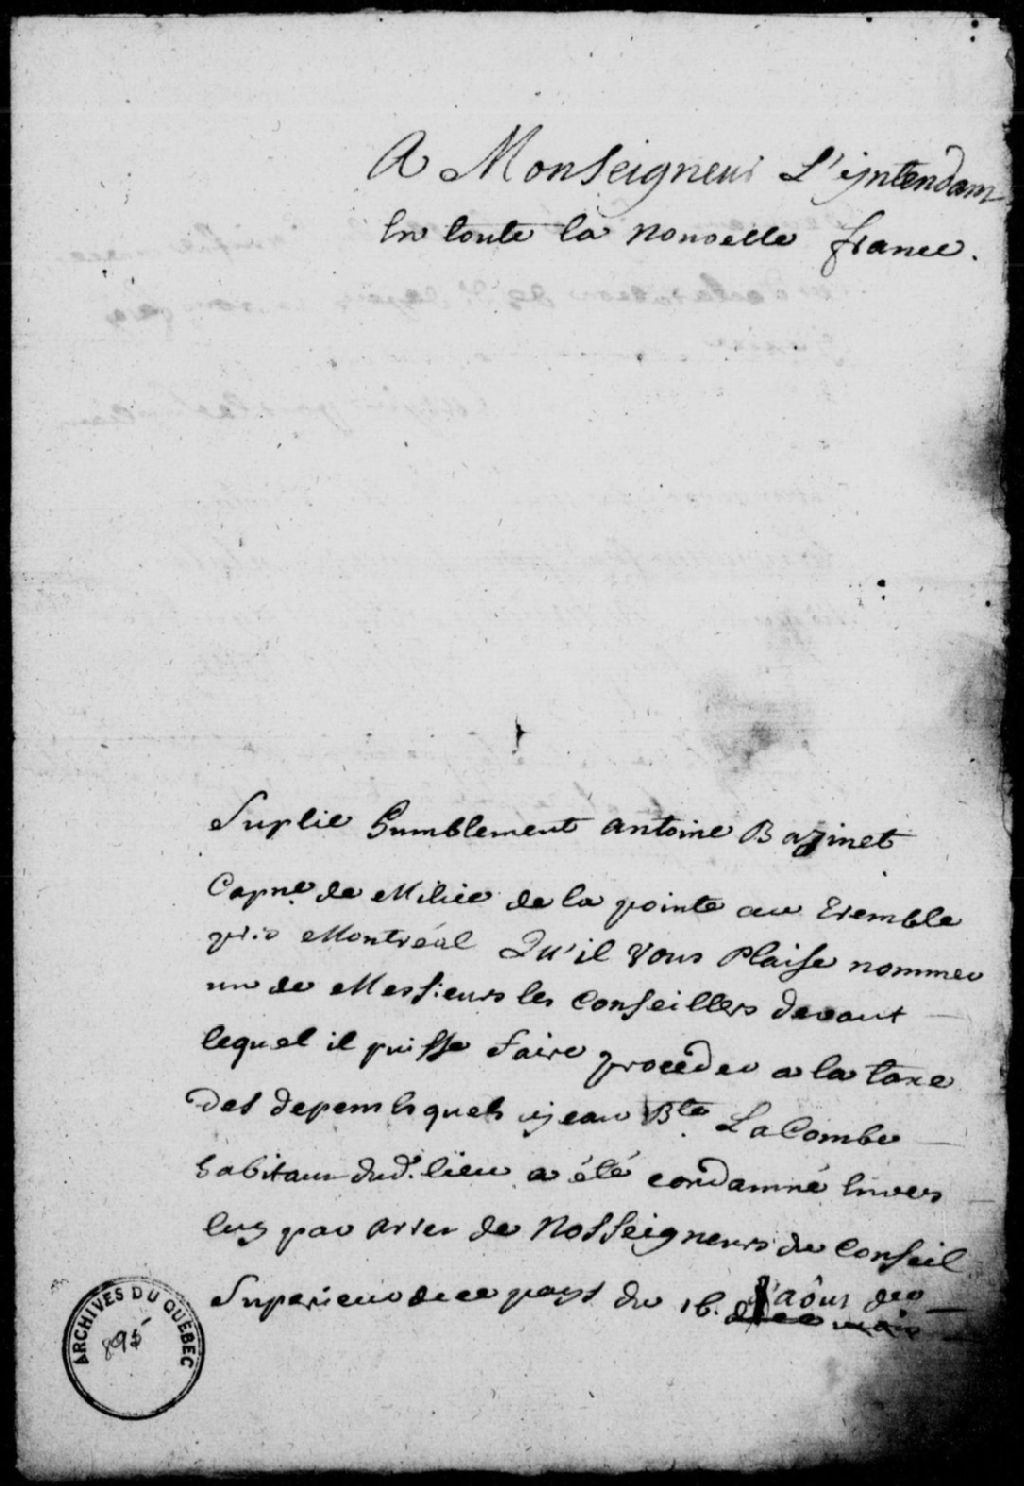 A Monseigneur L'yntendant
En toute la nouvelle france.
Suplie humblement antoine Bazinet
Capne. de Milice de la pointe aux Tremble
près Montréal Qu'il vous Plaise nommer
un de Messieurs les Conseillers devant
lequel il puisse faire proceder a la taxe
des depens esquels jean Bte. La Combe
habitant dud. lieu a été condamné Envers
luy par arrest de Nosseigneurs du Conseil
Superieur de ce pays du 16. d'aôust der
ARCHIVES DU QUÉBEC
895